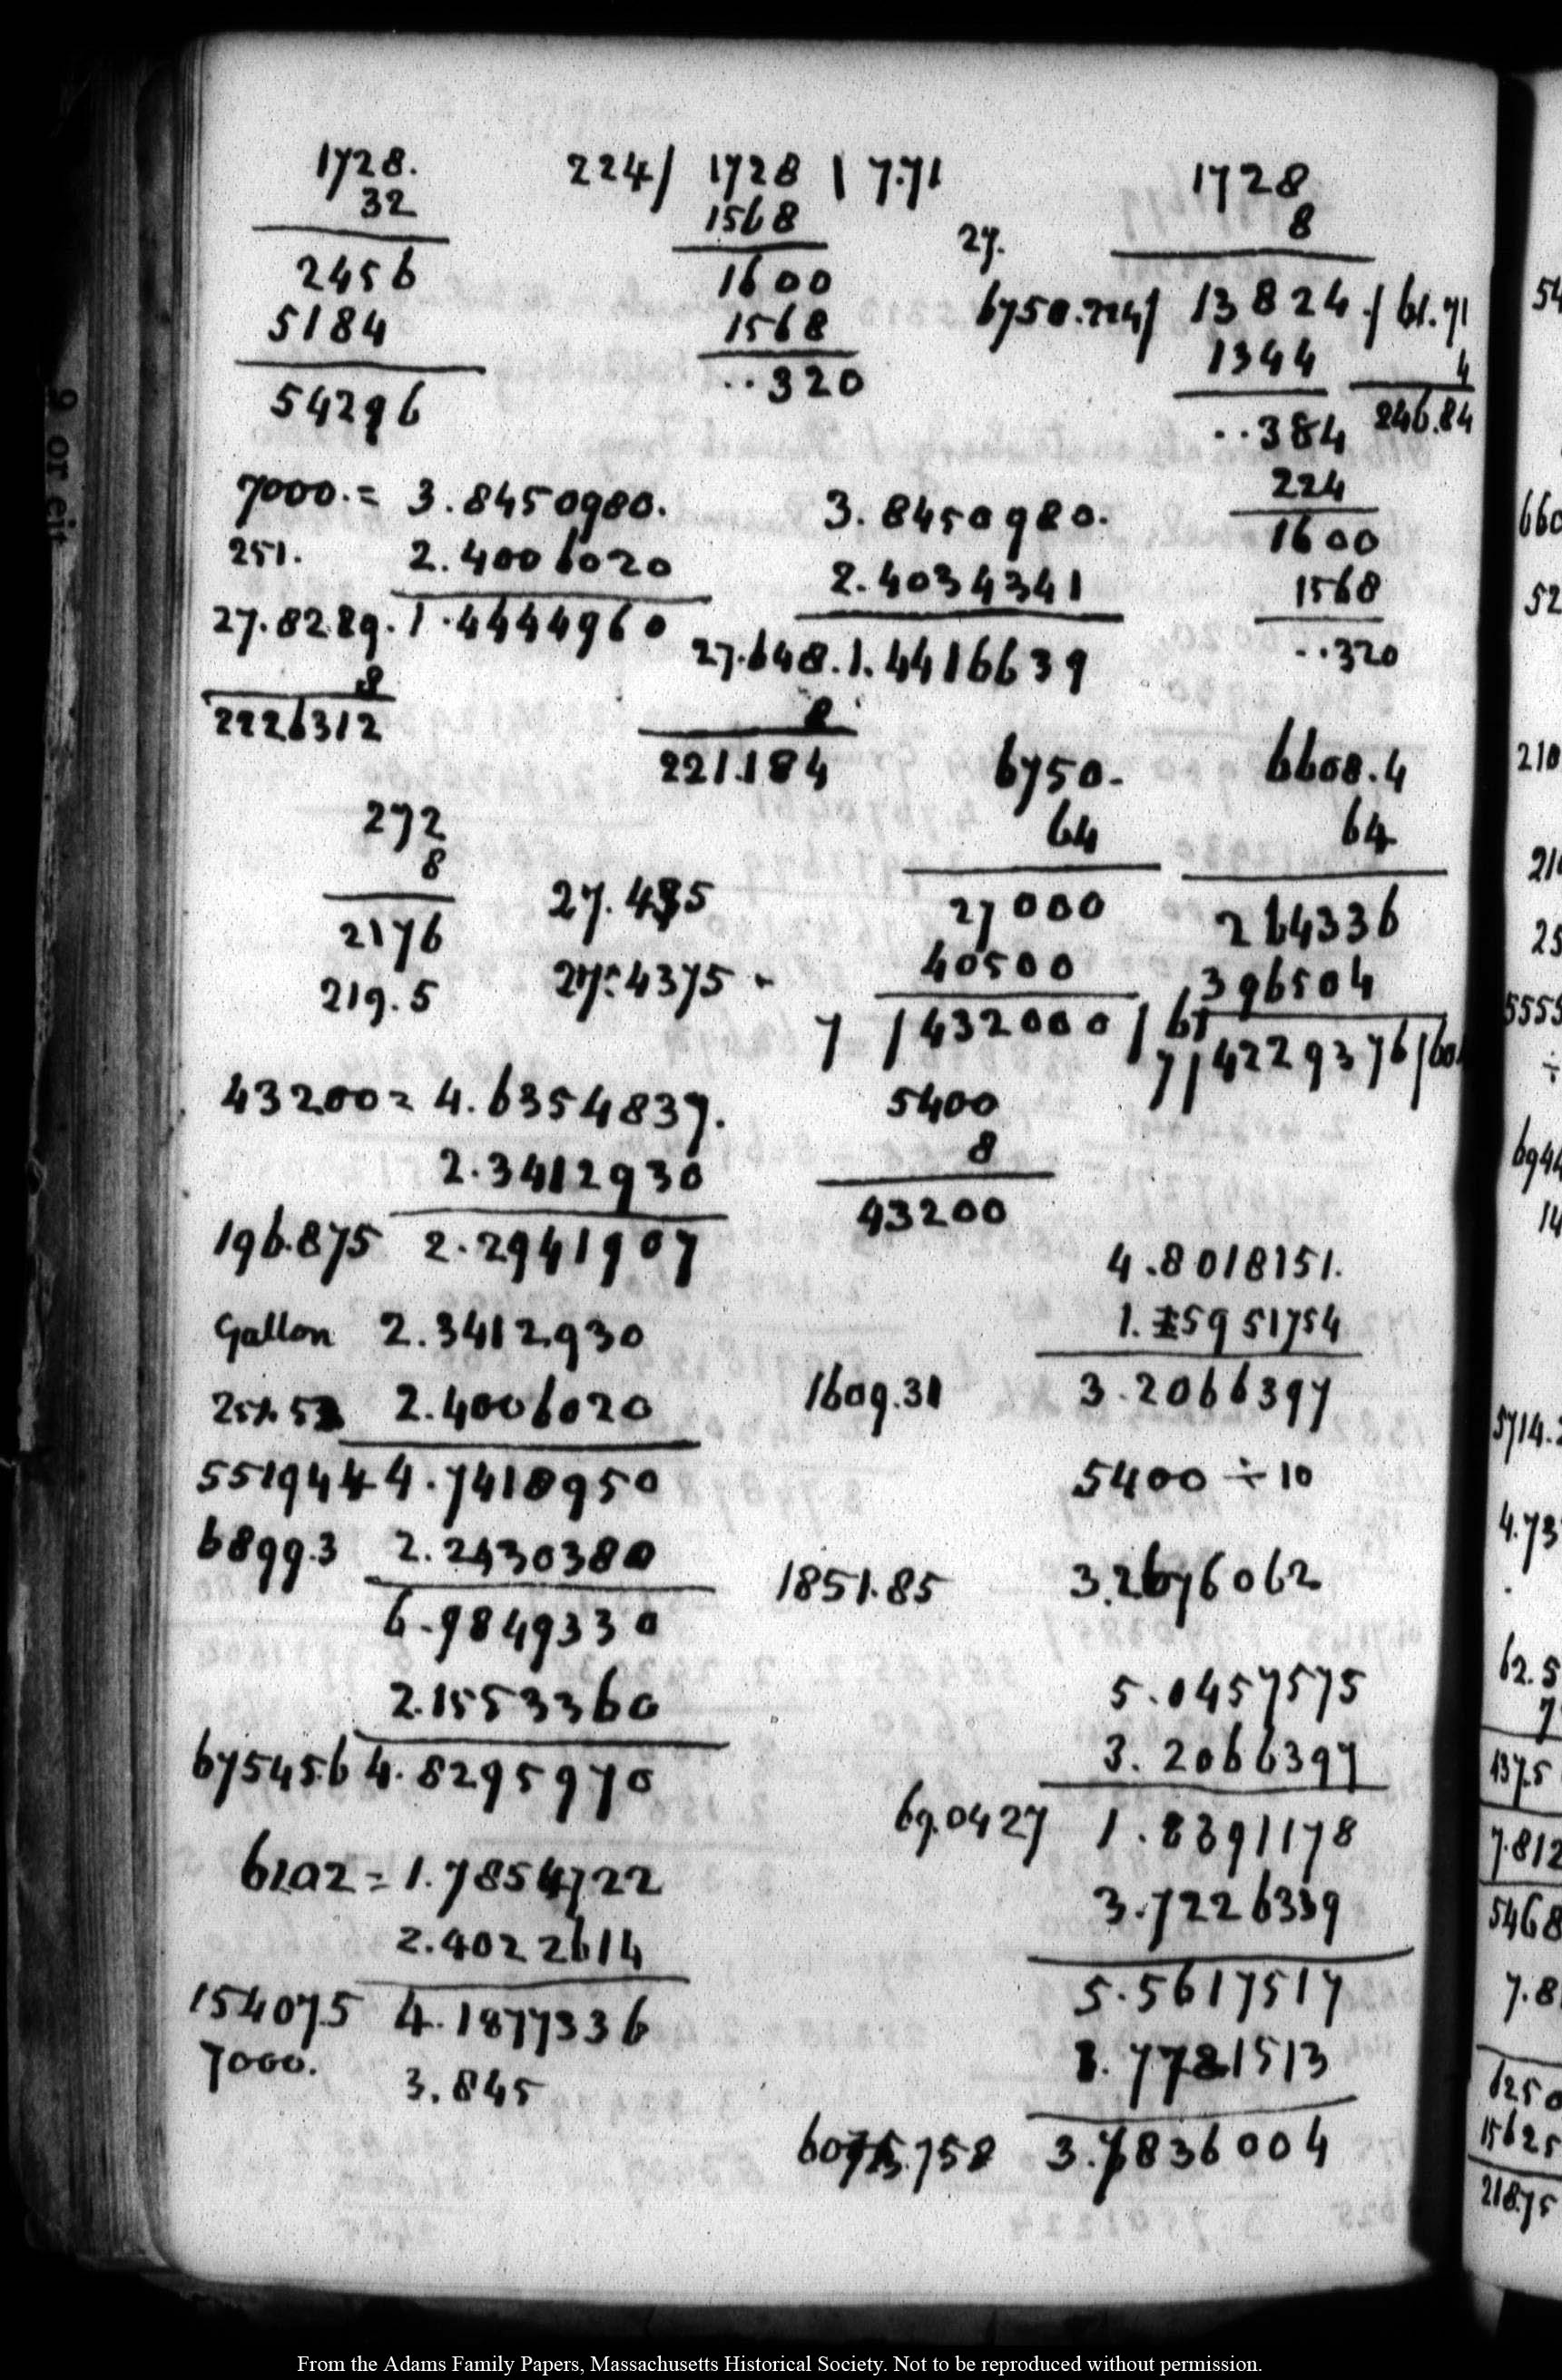 1728.
32
2456
5184
54296
224/ 1728 | 7.71
1568
1600
1568
..320
1728
8
27.
6750.224/ 13824./ 61.71
1344 4
..384 246.84
224
1600
1568
..320
7000.= 3.8450980.
251. 2.4006020
27.8289. 1.4444960
8
2226312
3.8450980.
2.4034341
27.648. 1.4416639
8
221.184
272
8
2176
219.5
27.435
27:4375
6750.
64
27000
40500
7 /432000/ 61
5400
8
43200
6608.4
64
264336
396504
7/4229376/60
43200= 4.6354837.
2.3412930
196.875 2.2941907
Gallon 2.3412930
2.4006020
551944 4.7418950
6899.3 2.2430380
6.9849330
2.1553360
67545.6 4.8295970
61.02 = 1.7854722
2.4022614
15407.5 4.1877336
7000. 3.845
4.8018151.
1.5951754
1609.31 3.2066397
5400 ÷ 10
1851.85 3.2676062
5.0457575
3.2066397
69.0427 1.8391178
3.7226339
5.5617517
1.7781513
3.7836004
9 or eit
54
660
52
210
21
25
5555
÷
6944
14
5714.2
4.73
62.5
7
437.5
7.812
5468
7.8
6250
15625
218.75
From the Adams Family Papers, Massachusetts Historical Society. Not to be reproduced without permission.